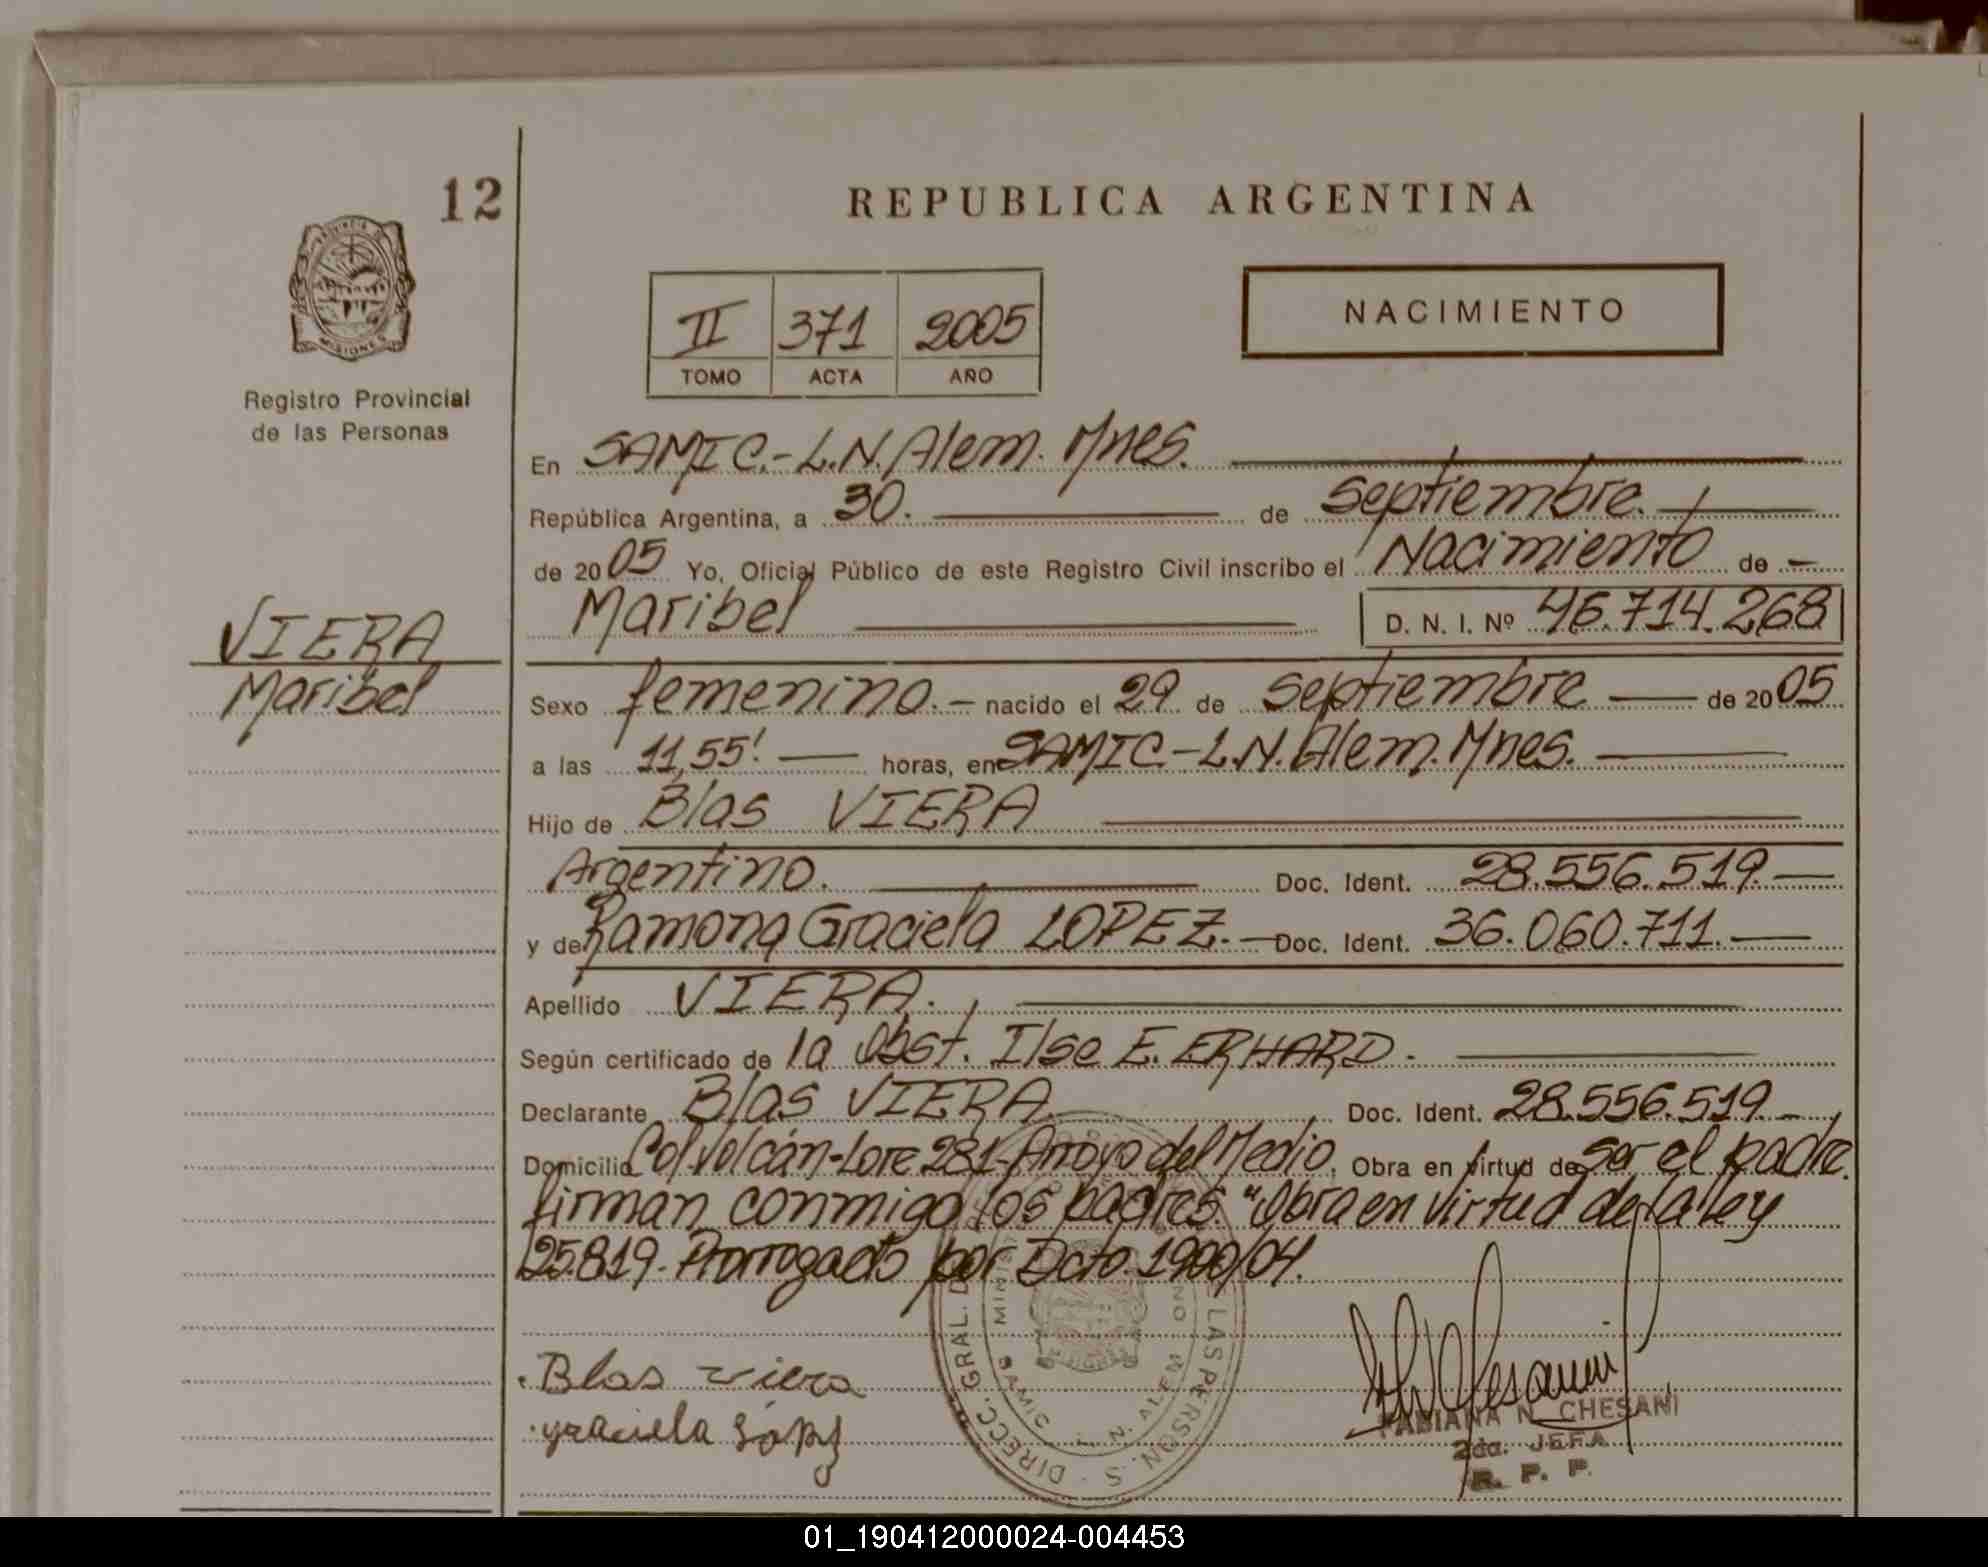 12
REPUBLICA ARGENTINA
PROVINCIA DE
MISIONES
Registro Provincial
de las Personas
II 371 2005
TOMO ACTA AÑO
NACIMIENTO
En SAMIC.-L.N.Alem. Mnes.
República Argentina, a 30. de septiembre.
de 2005 Yo, Oficial Público de este Registro Civil inscribo el Nacimiento de -
Maribel D. N. I. Nº 46.714.268
VIERA
Maribel
Sexo femenino.- nacido el 29 de septiembre de 2005
a las 11,55' horas, en SAMIC-L.N.Alem.Mnes.
Hijo de Blas VIERA
Argentino. Doc. Ident. 28.556.519.
y de Ramona Graciela LOPEZ.- Doc. Ident. 36.060.711.
Apellido VIERA.
Según certificado de la Obst. Ilse E. ERHARD.
Declarante Blas VIERA Doc. Ident. 28.556.519.
Domicilio Col.Volcán-Lote 281-Arroyo del Medio. Obra en virtud de ser el padre.
firman conmigo los padres. "Obra en virtud de la Ley
25.819. Prorrogado por Dcto. 1900/04.
Blas viera
graciela López
DIRECC. GRAL. D LAS PERSON S
SAMIC L. N. ALEM
MISIONES
FABIANA N. CHESANI
2da. JEFA
R. P. P.
01_190412000024-004453